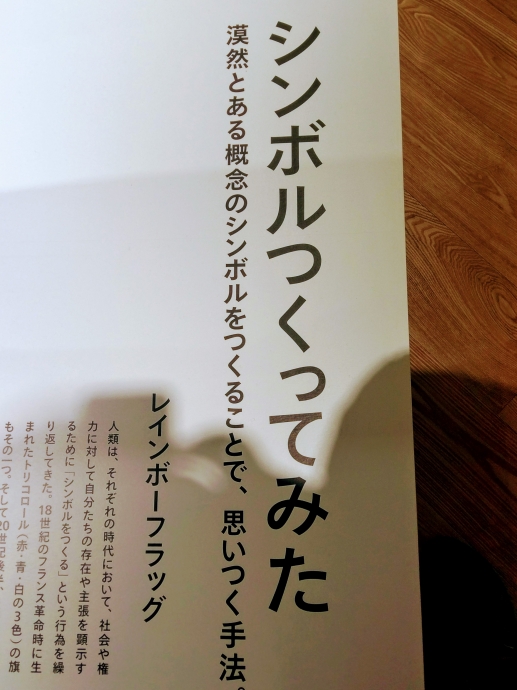 シンボルつくってみた
漠然とある概念のシンボルをつくることで、思いつく手法。
レインボーフラッグ
人類は、それぞれの時代において、社会や権
力に対して自分たちの存在や主張を顕示す
るために「シンボルをつくる」という行為を繰
り返してきた。18世紀のフランス革命時に生
まれたトリコロール（赤・青・白の3色）の旗
もその一つ。そして20世紀後半、